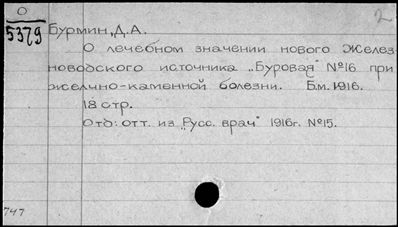 О
5379
Бурмин, Д.А.
О лечебном значении нового Желез-
новодского источника „Буровая" №16 при
желчно-каменной болезни. Б.м. 1916.
18 стр.
Отд: отт. из „Русс. врач" 1916г. №15.
2
747